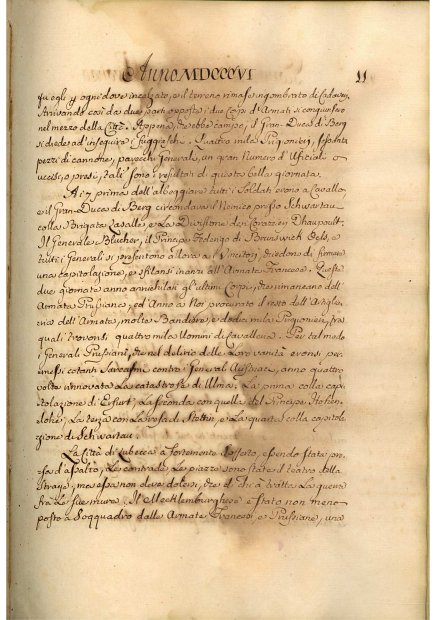 Anno MDCCCVI
11
fu egli p ogni dove incalzato, e il terreno rimase ingombrato di Cadaveri.
Arrivando così da due parti opposte i due Corpi d'Armati si congiunsero
nel mezzo della Città. Appena, che ebbe campo, il Gran-Duca di Berg
si diede ad inseguire i Fuggiaschi. Quattro mila Prigionieri, sessanta
pezzi di cannone, parecchi Generali, un gran numero d'Ufficiali
uccisi, o presi, tali sono i resultati di questa bella giornata.
Ai 7 prima dell'albeggiare tutti i Soldati erano a Cavallo,
e il Gran-Duca di Berg circondava il Nemico presso Schwartau
colla Brigata Lasalle, e La Divisione dei Corazzieri Dhaupoult.
Il Generale Blucher, il Principe Federigo di Brunswick Oels, e
tutti i Generali si presentono allora a' Vincitori, chiedono di firmare
una capitolazione, e sfilano inanzi all'Armata Francese. Queste
due giornate anno annichilati gl'ultimi Corpi, che rimaneano dell'
Armata Prussiana, ed Anno a Noi procurato il resto dell'Artiglie
ria dell'Armata, molte Bandiere, e dodici mila Prigionieri, fra
quali trovonsi quattro mila Uomini di Cavalleria. Per tal modo
i Generali Prussiani, che nel delirio delle Loro vanità eronsi per
messi cotanti Sarcasmi contro i Generali Austriaci, anno quattro
volte rinovata La catastrofe di Ulma. La prima colla capi
tolazione di Erfurt; La seconda con quella del Principe Hohen
lohe; La terza con La resa di Stettin, e La quarta colla capitola
zione di Schwartau.
La Città di Lubecca à fortemente sofferto, essendo stata pre
sa d'assalto; Le contrade, Le piazze sono state il teatro della
strage; ma essa non deve dolersi, che di chi à tratta La guerra
frà Le sue mura. Il Mecklemburghese è stato non meno
posto a Soqquadro dalle Armate Francesi, e Prussiane, una